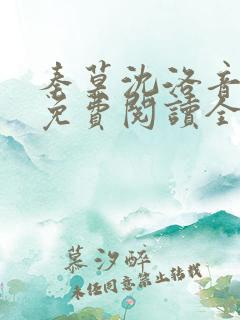 秦墓沈洛音
免費閱讀全
慕汐醉
未经同意禁止转载